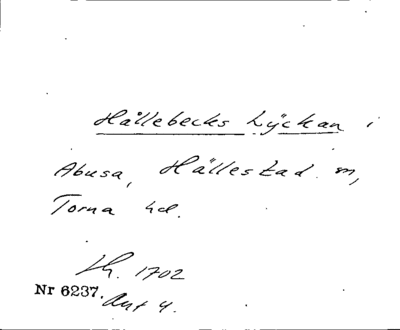 Hällebecks Lÿckan i
Abusa, Hällestad m,
Torna hd.
Lh. 1702
Nr 6237. Ant 4.